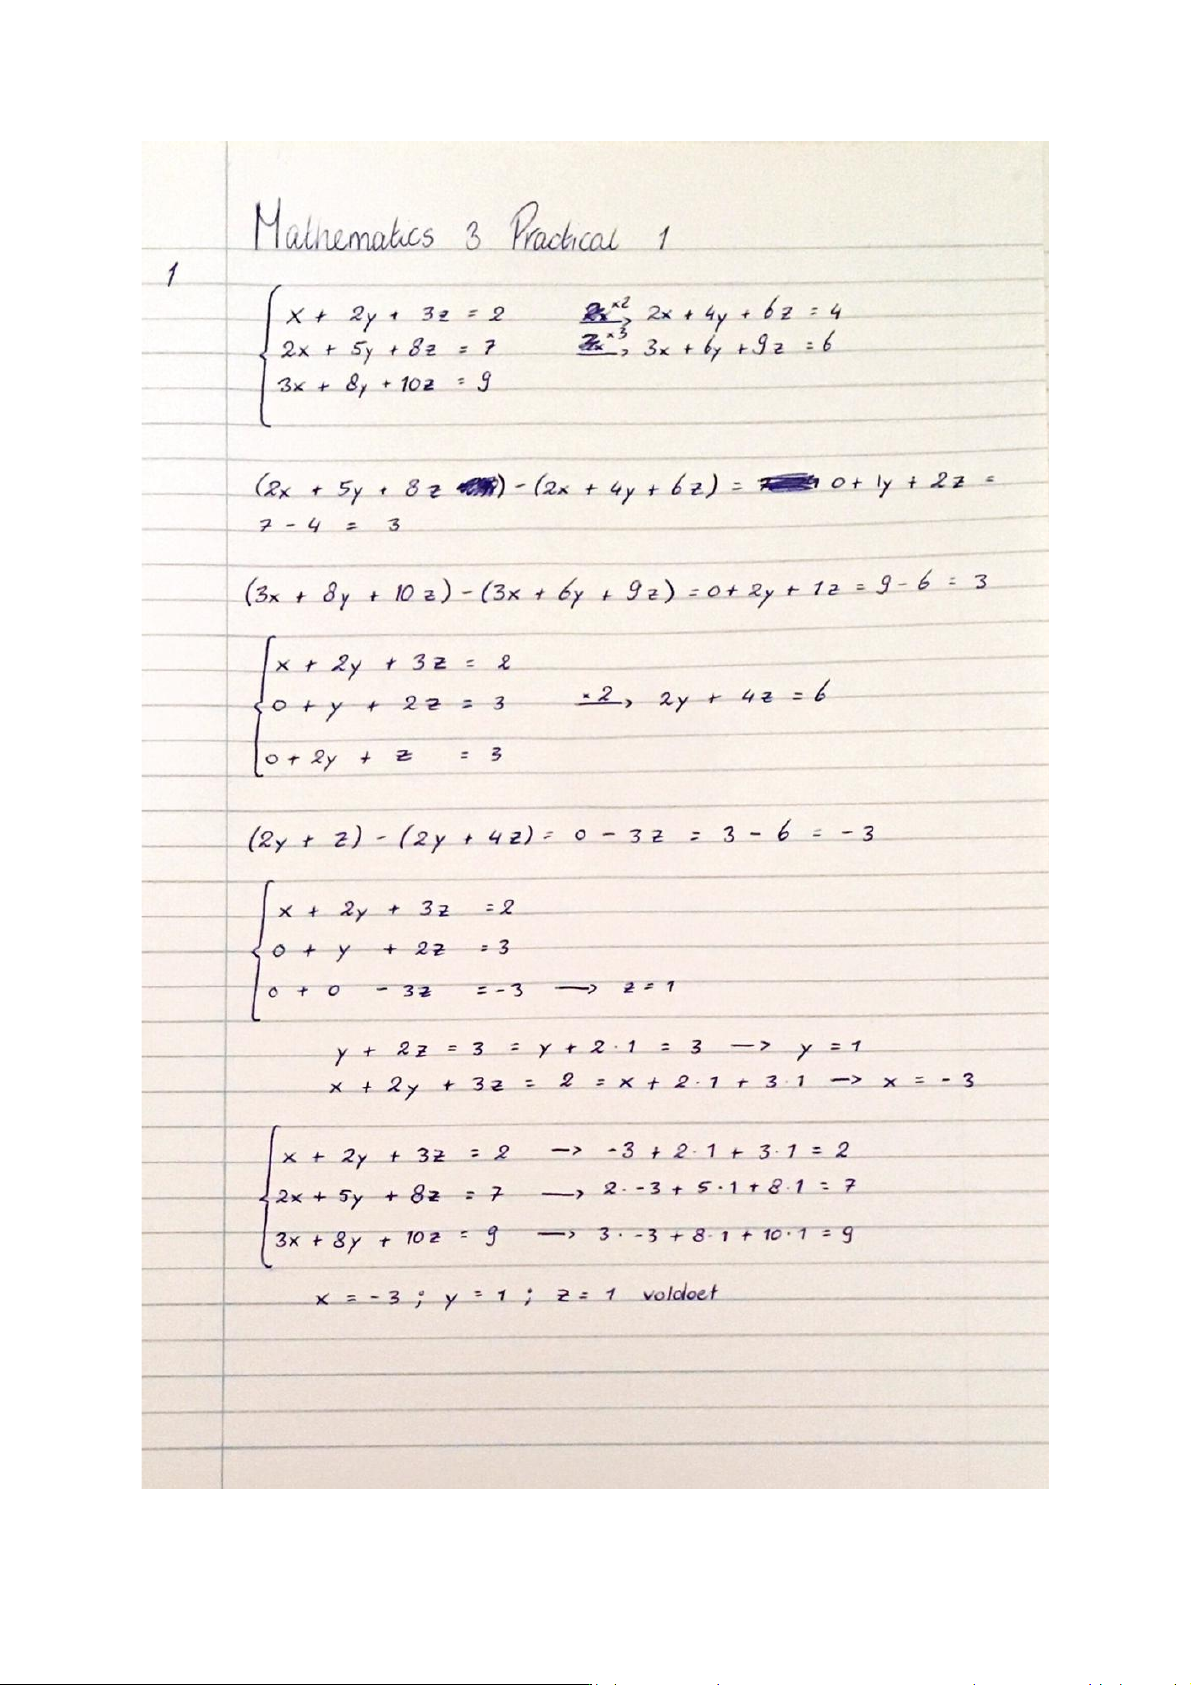 Mathematics 3 Practical 1
1
x + 2y + 3z = 2 ×2→ 2x + 4y + 6z = 4
2x + 5y + 8z = 7 ×3→ 3x + 6y + 9z = 6
3x + 8y + 10z = 9
(2x + 5y + 8z ) - (2x + 4y + 6z) = 0 + 1y + 2z =
7 - 4 = 3
(3x + 8y + 10z) - (3x + 6y + 9z) = 0 + 2y + 1z = 9 - 6 = 3
x + 2y + 3z = 2
0 + y + 2z = 3 ×2→ 2y + 4z = 6
0 + 2y + z = 3
(2y + z) - (2y + 4z) = 0 - 3z = 3 - 6 = -3
x + 2y + 3z = 2
0 + y + 2z = 3
0 + 0 - 3z = -3 → z = 1
y + 2z = 3 = y + 2·1 = 3 → y = 1
x + 2y + 3z = 2 = x + 2·1 + 3·1 → x = -3
x + 2y + 3z = 2 → -3 + 2·1 + 3·1 = 2
2x + 5y + 8z = 7 → 2·-3 + 5·1 + 8·1 = 7
3x + 8y + 10z = 9 → 3·-3 + 8·1 + 10·1 = 9
x = -3 ; y = 1 ; z = 1 voldoet